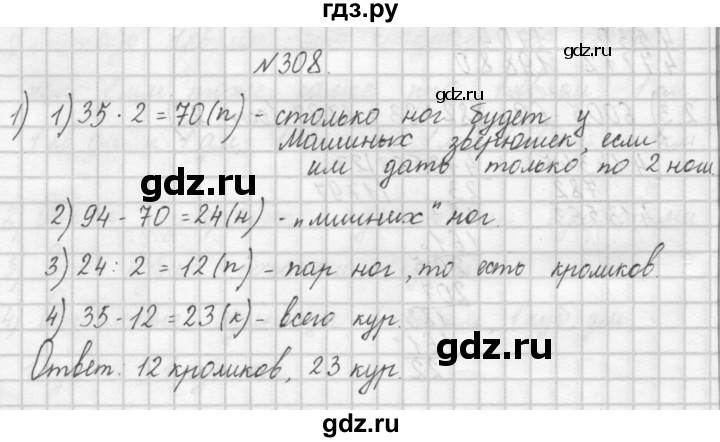 гдз.ру
№308.
1) 1) 35 · 2 = 70 (п) - столько ног будет у
Машиных зверюшек, если
им дать только по 2 ноги.
2) 94 - 70 = 24 (н) - "лишних" ног.
3) 24 : 2 = 12 (п) - пар ног, то есть кроликов.
4) 35 - 12 = 23 (к) - всего кур.
Ответ. 12 кроликов, 23 кур.
gdz.ru
gdz.ru
gdz.ru
gdz.ru
gdz.ru
gdz.ru